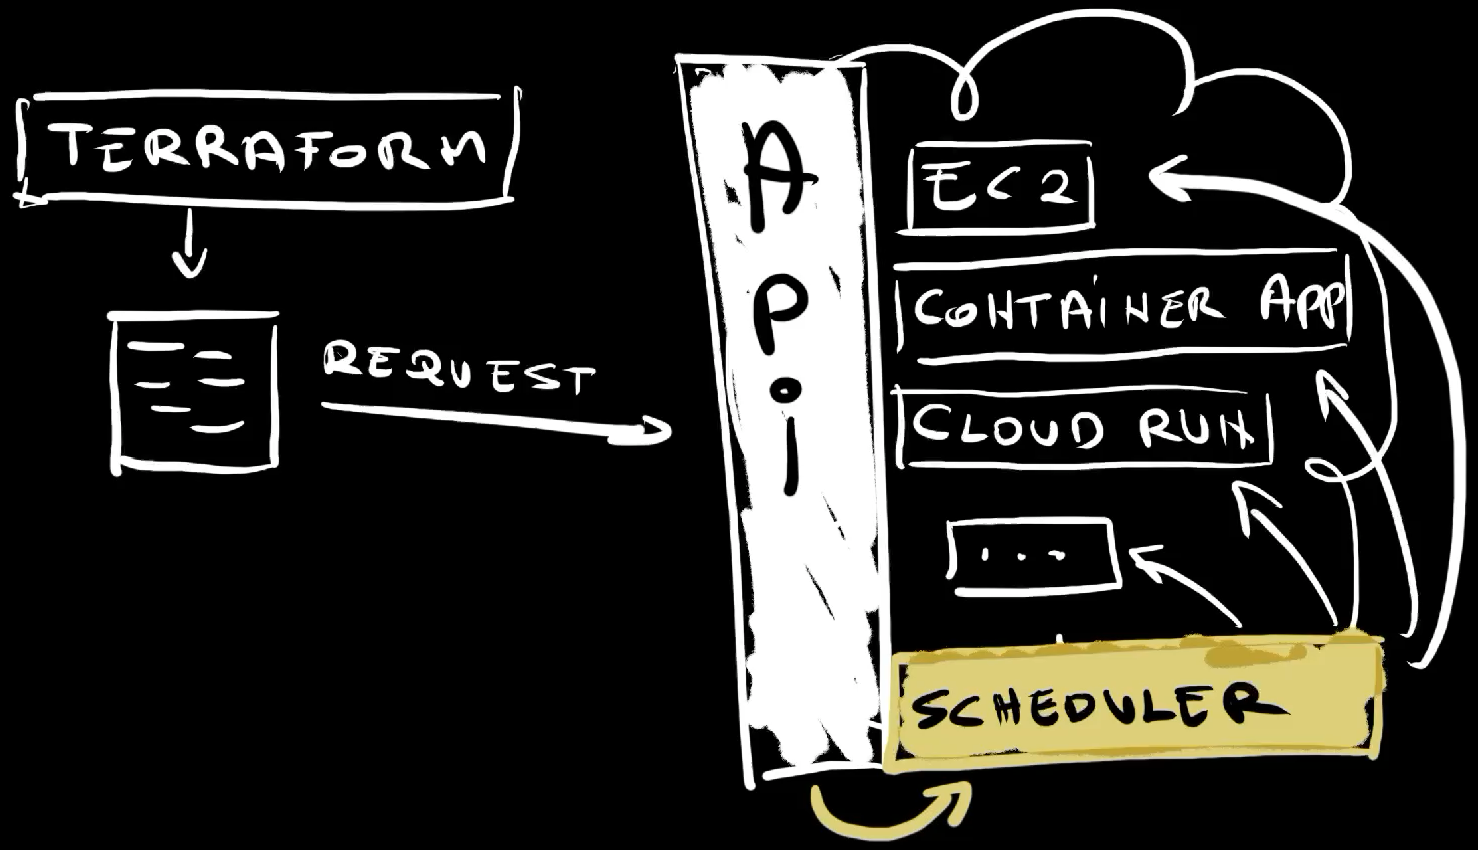 TERRAFORM
REQUEST
API
EC2
CONTAINER APP
CLOUD RUN
...
SCHEDULER